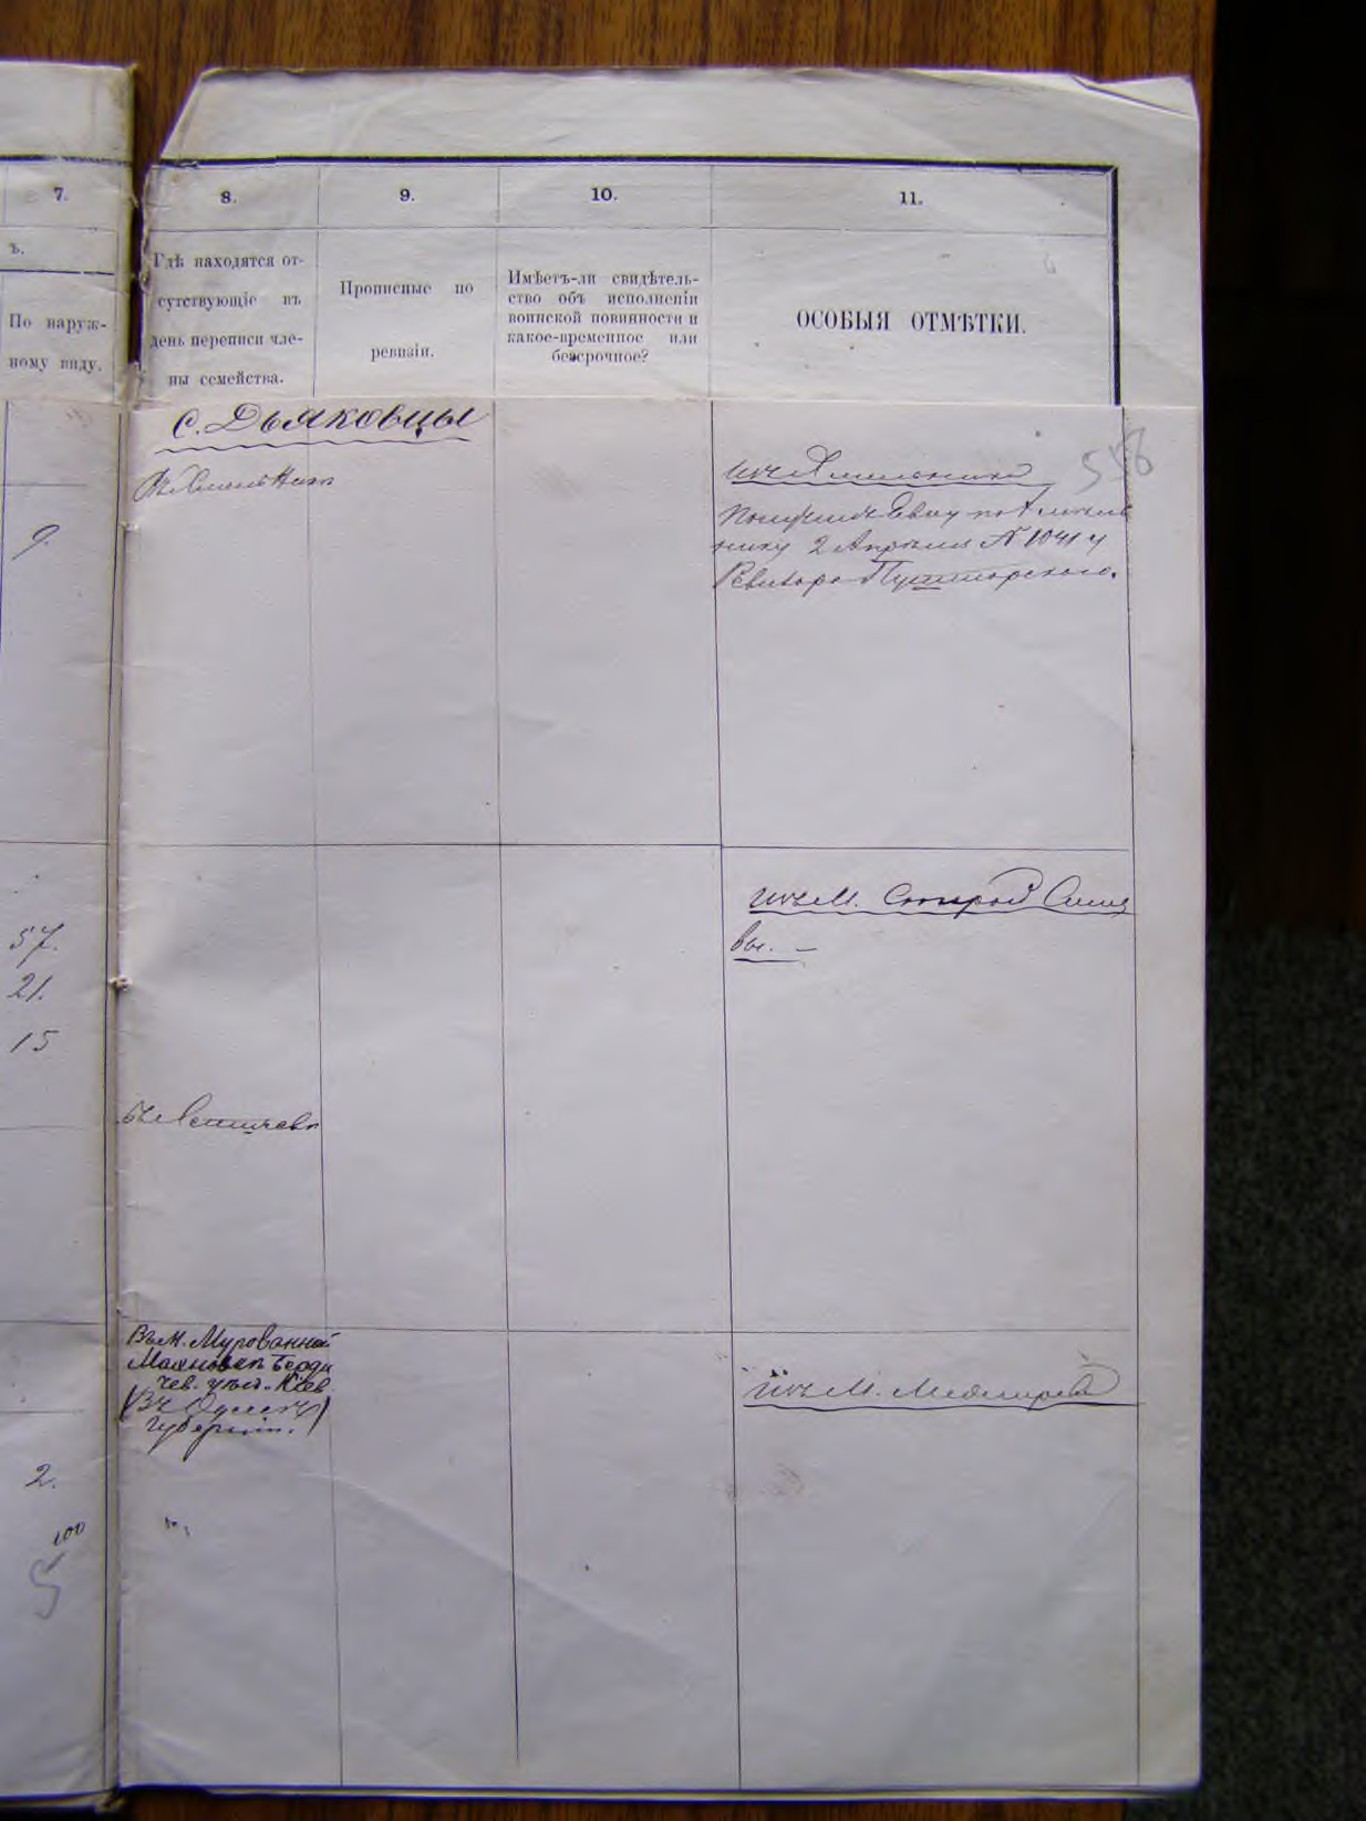 7.
8.
9.
10.
11.
ъ.
По наруж-
ному виду.
Гдѣ находятся от-
сутствующіе въ
день переписи чле-
ны семейства.
Прописные по
ревизіи.
Имѣетъ-ли свидѣтель-
ство объ исполненіи
воинской повинности и
какое-временное или
безсрочное?
ОСОБЫЯ ОТМѢТКИ.
с. Дьяковцы
558
9.
2 Апрѣля № 1041 у
57.
21.
15
изъ М. Старой Синя
вы. –
Въ м. Мурованной
Махновкѣ Берди
чев. уѣзд. Кіев.
(Въ Одесск)
Губерніи.
изъ М.
2.
100
5